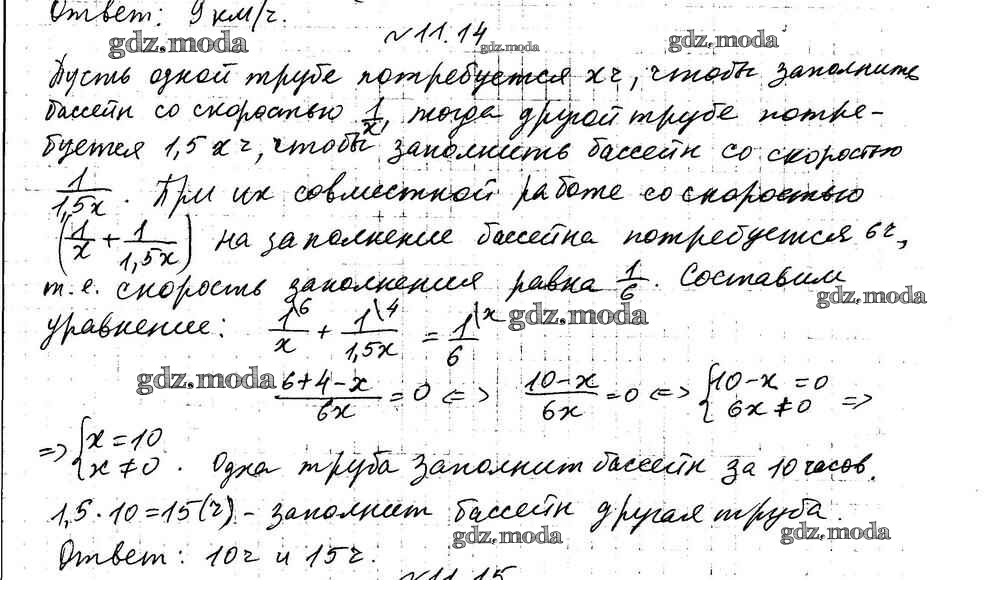 Ответ: 9 км/ч.
gdz.moda
№11.14
gdz.moda
gdz.moda
Пусть одной трубе потребуется x ч, чтобы заполнить
бассейн со скоростью 1/x, тогда другой трубе потре-
буется 1,5 x ч, чтобы заполнить бассейн со скоростью
1/1,5x. При их совместной работе со скоростью
(1/x + 1/1,5x) на заполнение бассейна потребуется 6ч,
т.е. скорость заполнения равна 1/6. Составим
gdz.moda
уравнение: 1\6/x + 1\4/1,5x = 1\x/6
gdz.moda
gdz.moda
6+4-x/6x = 0 <=> 10-x/6x = 0 <=> {10-x = 0 6x ≠ 0 =>
=> {x = 10 x ≠ 0. Одна труба заполнит бассейн за 10 часов.
1,5 · 10 = 15(ч) - заполнит бассейн другая труба.
gdz.moda
gdz.moda
Ответ: 10ч и 15ч.
№11.15